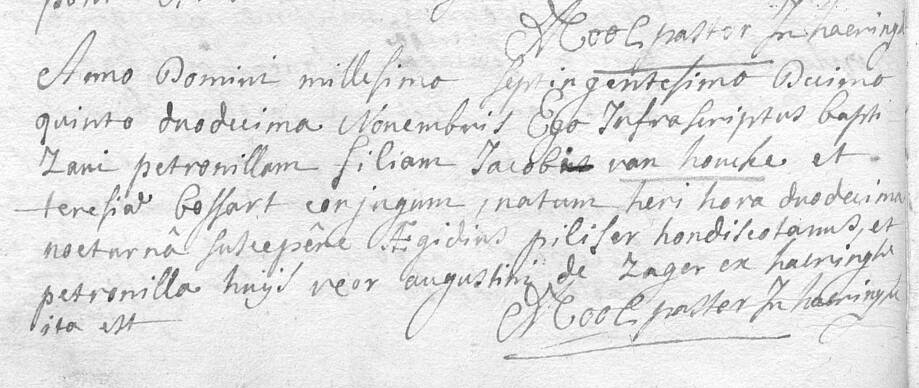 Mool pastor In haeringhe
Anno Domini millesimo septingentesimo Decimo
quinto duodecima Novembris Ego Infrascriptus bapti
zavi petronillam filiam Jacobi van houcke et
teresiæ bossart conjugum, natam heri hora duodecima
nocturnâ susceperê Ægidius piliser hondiscotanus, et
petronilla huijs veor augustini de Zager ex haeringhe
ita est Mool pastor In haeringhe